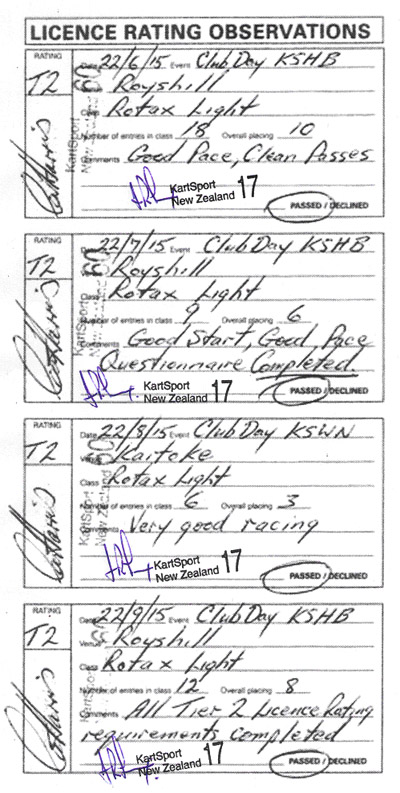 LICENCE RATING OBSERVATIONS
RATING
T2
Date 22/6/15 Event Club Day KSHB
Royshill
Class Rotax Light
Number of entries in class 18 Overall placing 10
Comments Good Pace, Clean Passes
KartSport
New Zealand 17
PASSED / DECLINED
KartSport
New Zealand 60
RATING
T2
22/7/15 Event Club Day KSHB
Royshill
Class Rotax Light
Number of entries in class 9 Overall placing 6
Comments Good Start, Good Pace
Questionnaire Completed.
KartSport
New Zealand 17
PASSED / DECLINED
KartSport
New Zealand 60
RATING
T2
Date 22/8/15 Event Club Day KSWN
Venue Kaitoke
Class Rotax Light
Number of entries in class 6 Overall placing 3
Comments Very good racing
KartSport
New Zealand 17
PASSED / DECLINED
KartSport
New Zealand 60
RATING
T2
Date 22/9/15 Event Club Day KSHB
Venue Royshill
Class Rotax Light
Number of entries in class 12 Overall placing 8
Comments All Tier 2 Licence Rating
requirements completed
KartSport
New Zealand 17
PASSED / DECLINED
KartSport
New Zealand